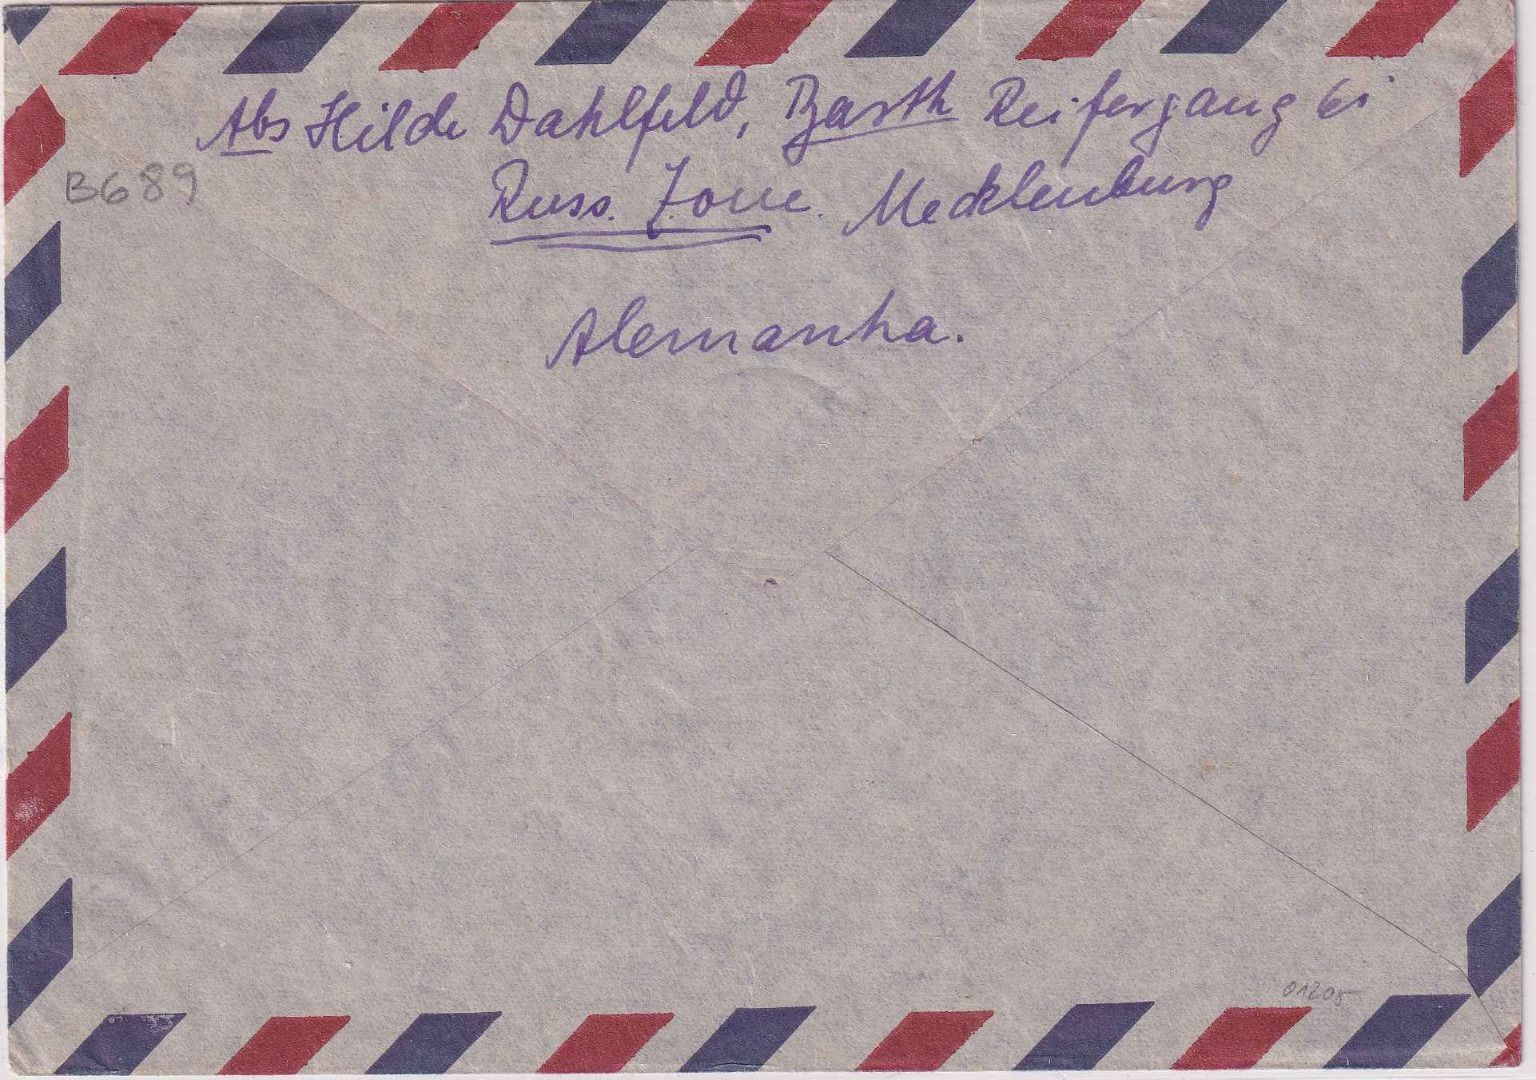 Abs Hilde Dahlfeld, Barth Reifergang 61
Russ. Zone. Mecklenburg
Alemanha.
B689
01205